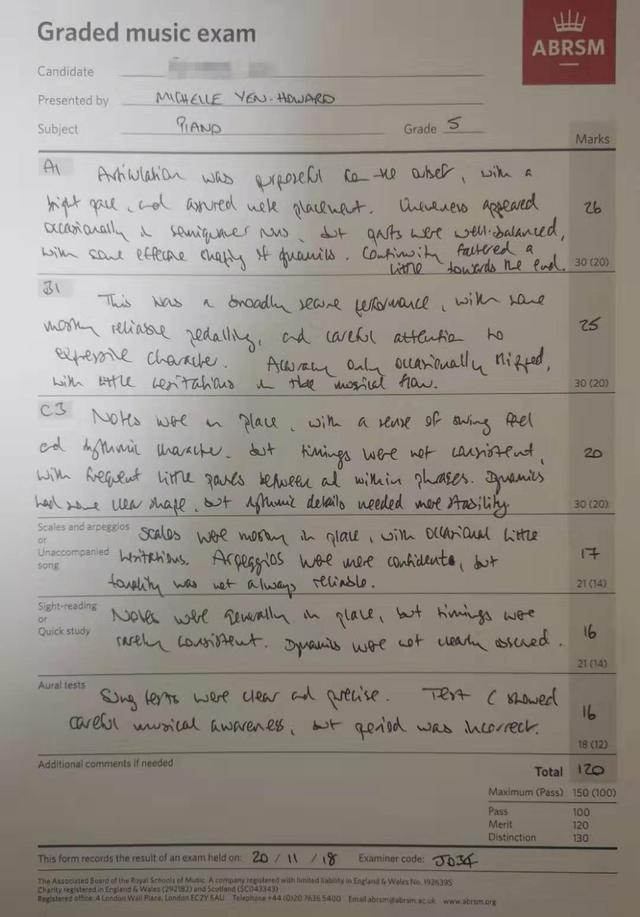 Graded music exam
ABRSM
Candidate
Presented by MICHELLE YEN-HOWARD
Subject PIANO Grade 5
Marks
A1 Articulation was purposeful from the outset, with a
bright pace, and assured note placement. Unevenness appeared
occasionally in semiquaver runs, but parts were well-balanced, 26
with some effective shaping of dynamics. Continuity faltered a
little towards the end. 30 (20)
B1 This was a broadly secure performance, with some
mostly reliable pedalling, and careful attention to 25
expressive character. Accuracy only occasionally slipped,
with little hesitations in the musical flow. 30 (20)
C3 Notes were in place, with a sense of swing feel
and rhythmic character, but timings were not consistent, 20
with frequent little pauses between and within phrases. Dynamics
had some clear shape, but rhythmic details needed more stability. 30 (20)
Scales and arpeggios
or
Unaccompanied
song
Scales were mostly in place, with occasional little
hesitations. Arpeggios were more confident, but 17
tonality was not always reliable. 21 (14)
Sight-reading
or
Quick study
Notes were generally in place, but timings were
rarely consistent. Dynamics were not clearly observed. 16
21 (14)
Aural tests
Sung tests were clear and precise. Test C showed
careful musical awareness, but period was incorrect. 16
18 (12)
Additional comments if needed
Total 120
Maximum (Pass) 150 (100)
Pass 100
Merit 120
Distinction 130
This form records the result of an exam held on: 20 / 11 / 18 Examiner code: J034
The Associated Board of the Royal Schools of Music. A company registered with limited liability in England & Wales No. 1926395
Charity registered in England & Wales (292182) and Scotland (SC043343)
Registered office: 4 London Wall Place, London EC2Y 5AU Telephone +44 (0)20 7636 5400 Email abrsm@abrsm.ac.uk www.abrsm.org